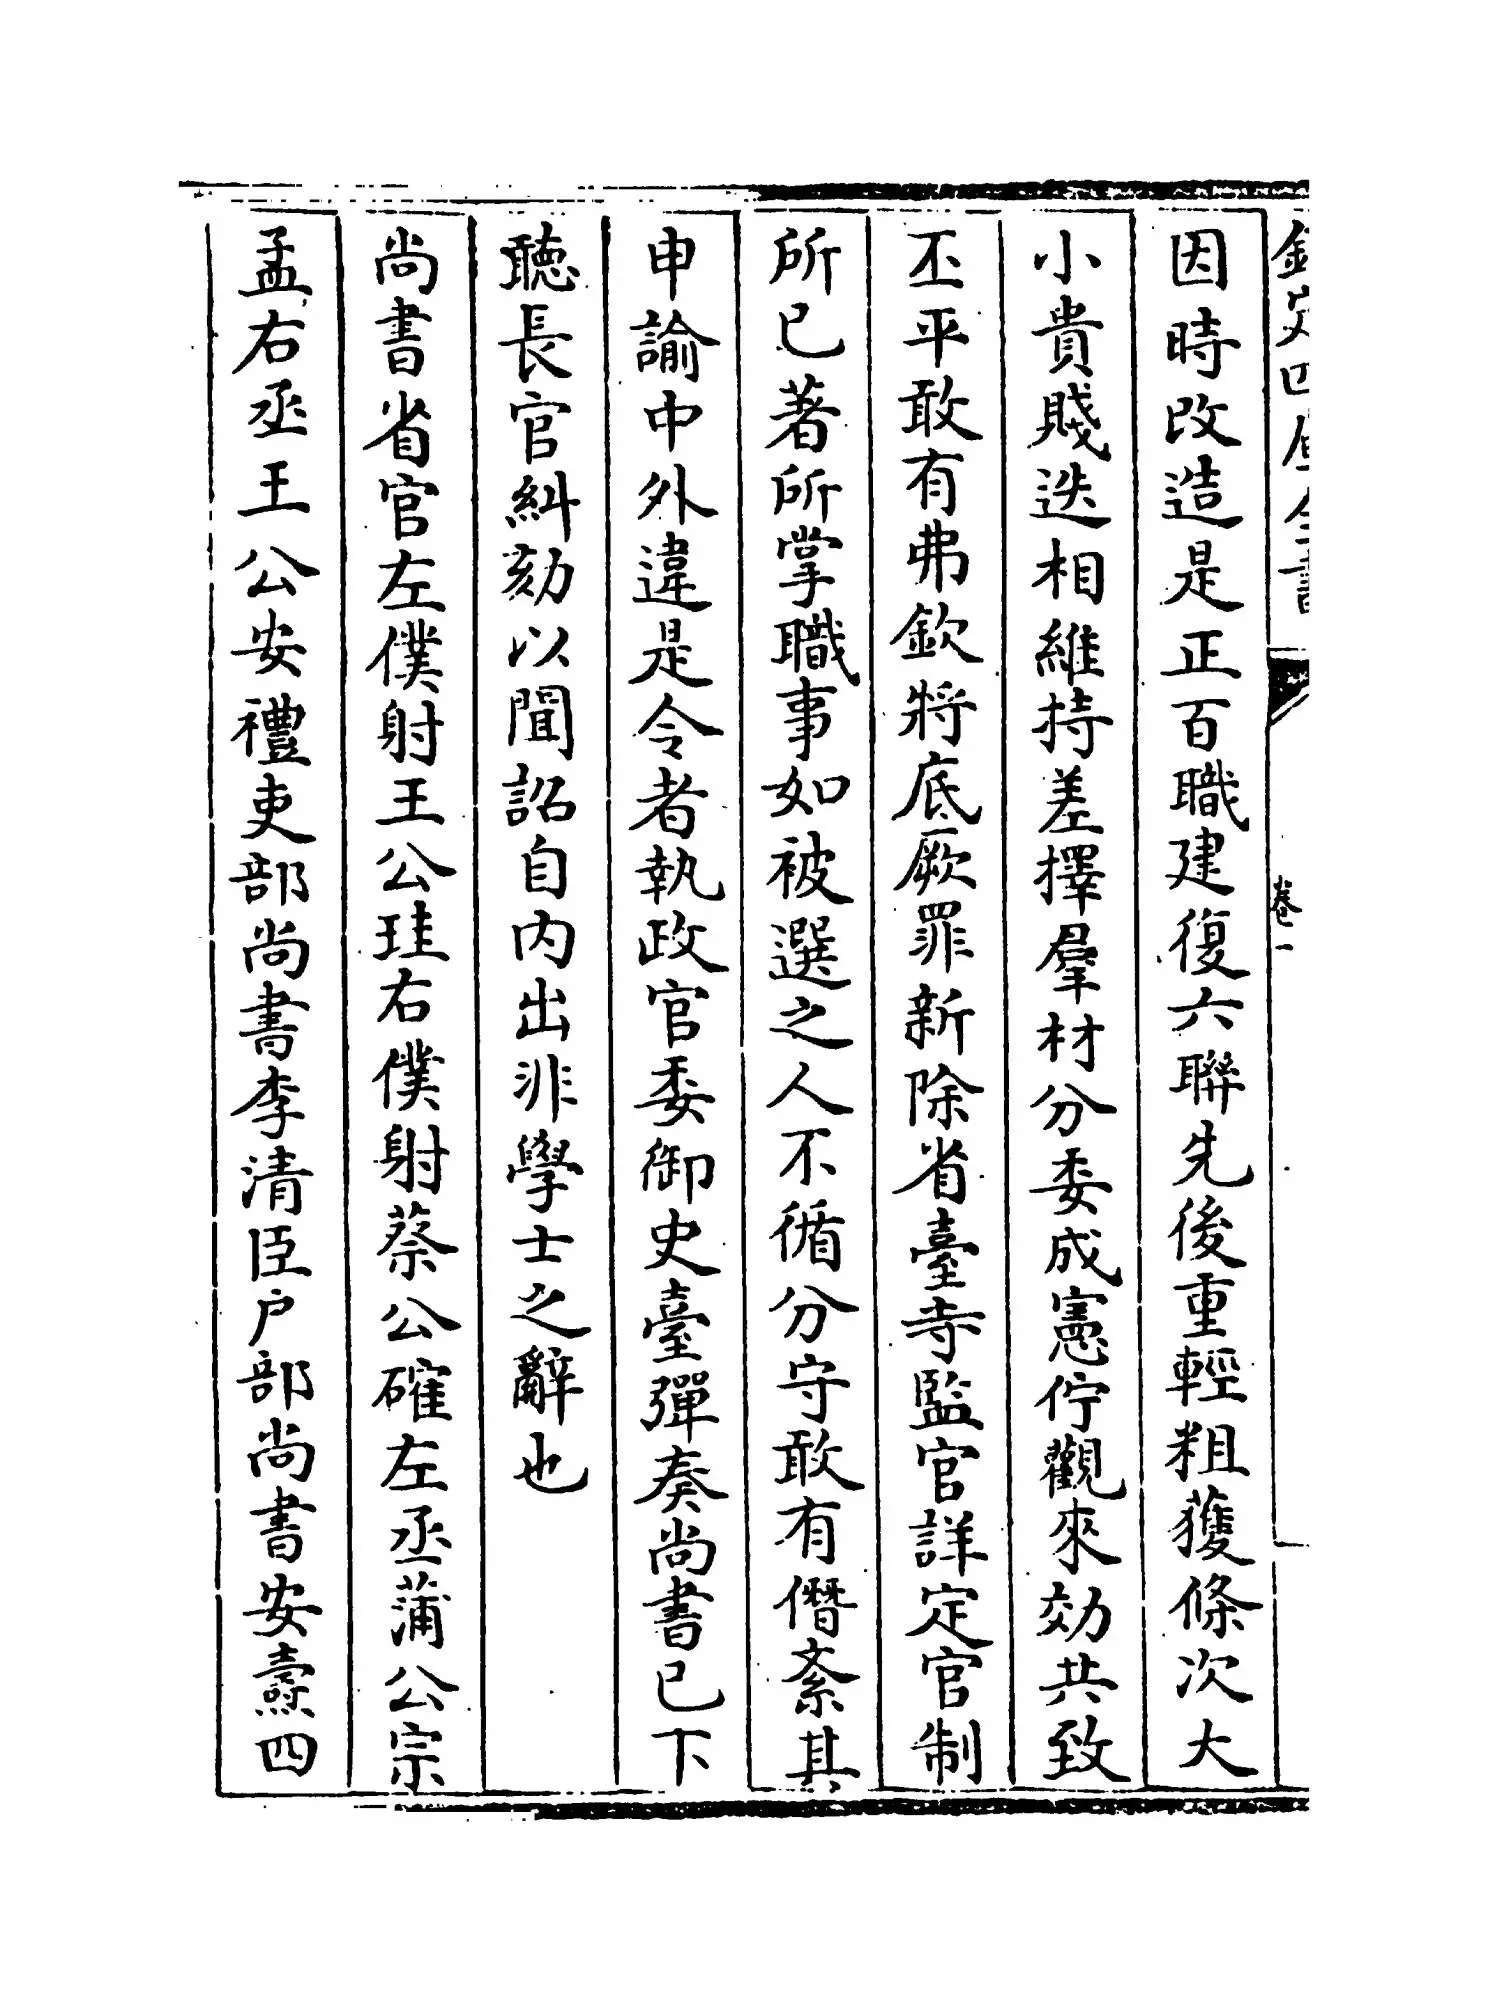 欽定四庫全書
卷一
因時改造是正百職建復六聯先後重輕粗獲條次大
小貴賤迭相維持差擇羣材分委成憲佇觀來効共致
丕平敢有弗欽將底厥罪新除省臺寺監官詳定官制
所已著所掌職事如被選之人不循分守敢有僭紊其
申諭中外違是令者執政官委御史臺彈奏尚書已下
聽長官糾劾以聞詔自内出非學士之辭也
尚書省官左僕射王公珪右僕射蔡公確左丞蒲公宗
孟右丞王公安禮吏部尚書李清臣户部尚書安燾四